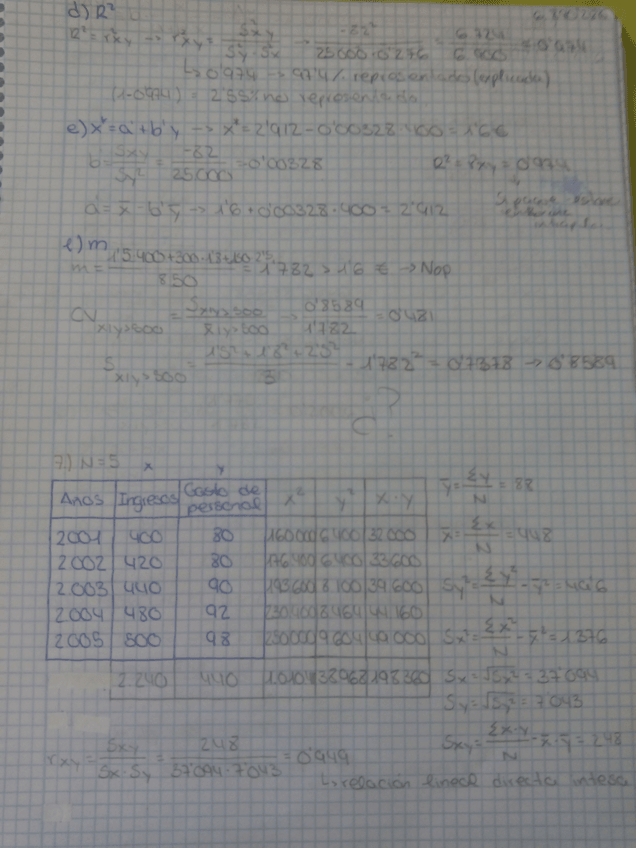 d) R²
R² = r²xy → r²xy = S²xy / S²y · S²x = -82² / 25000 · 0'276 = 6724 / 6900 = 0'974
↳ 0'974 → 97'4% representados (explicada)
(1-0'974) = 2'55% no representado
e) x* = a' + b' y → x* = 2'912 - 0'00328 · 400 = 1'6
b' = Sxy / Sy² = -82 / 25000 = 0'00328 R² = rxy = 0'974
a' = x̄ - b' ȳ → 1'6 + 0'00328 · 400 = 2'912
f) m
m = 1'5·400+300·1'8+150·2'5 / 850 = 1'782 > 1'6 € → Nop
CV x|y>500 = Sx|y>500 / x̄|y>500 → 0'8589 / 1'782 = 0'481
S x|y>500 = 1'5² + 1'8² + 2'5² / 3 - 1'782² = 0'7378 → 0'8589
¿?
7.) N = 5 x y
Años Ingresos Gasto de personal x² y² x · y
2001 400 80 160000 6400 32000
2002 420 80 176400 6400 33600
2003 440 90 193600 8100 39600
2004 480 92 230400 8464 44160
2005 500 98 250000 9604 49000
2.240 440 38968 198360
ȳ = Σy / N = 88
x̄ = Σx / N = 448
Sy² = Σy² / N - ȳ² = 49'6
Sx² = Σx² / N - x̄² = 1376
Sx = √Sx² = 37'094
Sy = √Sy² = 7'043
Sxy = Σx·y / N - x̄ · ȳ = 248
rxy = Sxy / Sx · Sy = 248 / 37'094 · 7'043 = 0'949
↳ relación lineal directa intesa